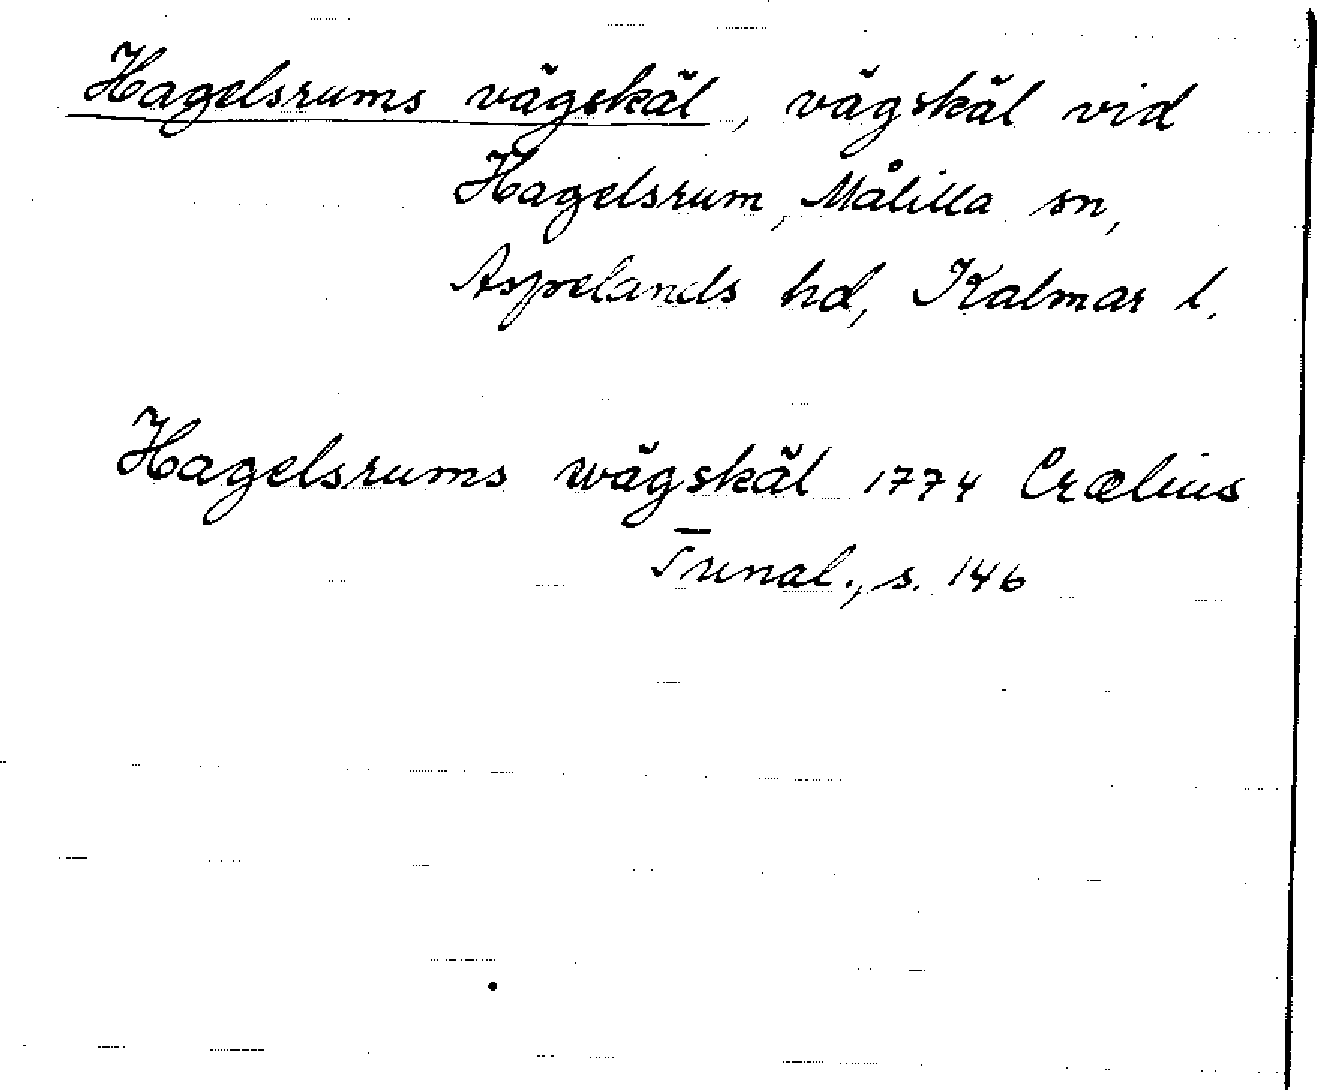 Hagelsrums vägskäl, vägskäl vid
Hagelsrum, Målilla sn,
Aspelands hd, Kalmar l.
Hagelsrums wägskäl 1774 Crælius
Tunal., s. 146